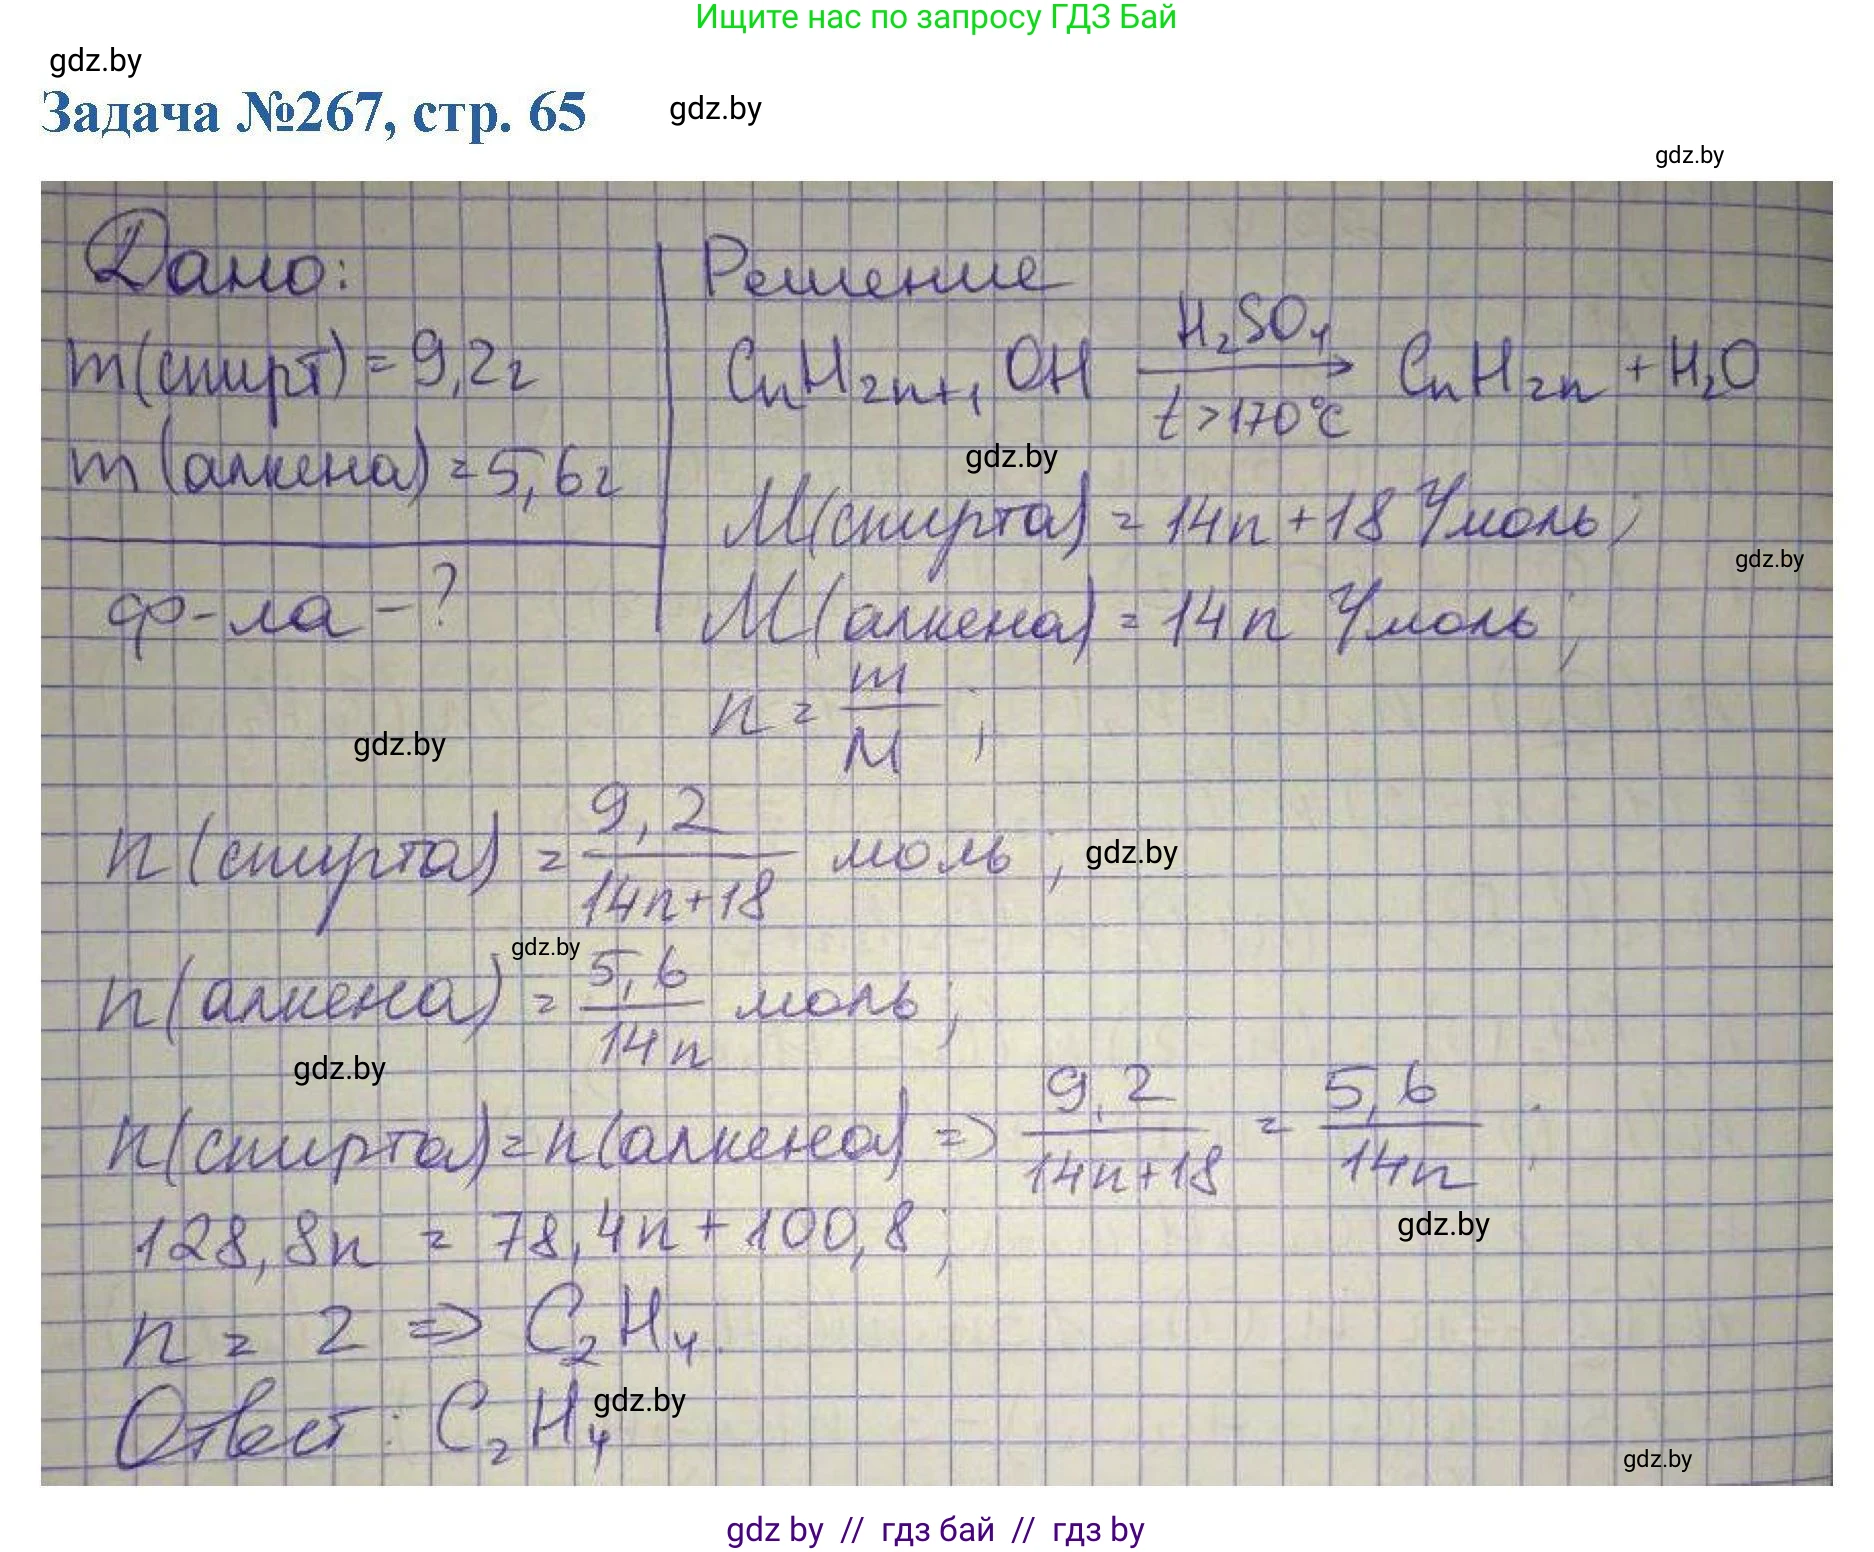 Ищите нас по запросу ГДЗ Бай
gdz.by
Задача №267, стр. 65
gdz.by
gdz.by
Дано:
m(спирт) = 9,2г
m(алкена) = 5,6г
ф-ла - ?
Решение
CnH2n+1OH H2SO4 t > 170°C → CnH2n + H2O
gdz.by
M(спирта) = 14n + 18 г/моль;
gdz.by
M(алкена) = 14n г/моль;
n = m/M;
gdz.by
n(спирта) = 9,2/14n+18 моль;
gdz.by
gdz.by
n(алкена) = 5,6/14n моль;
gdz.by
n(спирта) = n(алкена) => 9,2/14n+18 = 5,6/14n;
gdz.by
128,8n = 78,4n + 100,8;
n = 2 => C2H4.
gdz.by
Ответ: C2H4
gdz.by
gdz by // гдз бай // гдз by